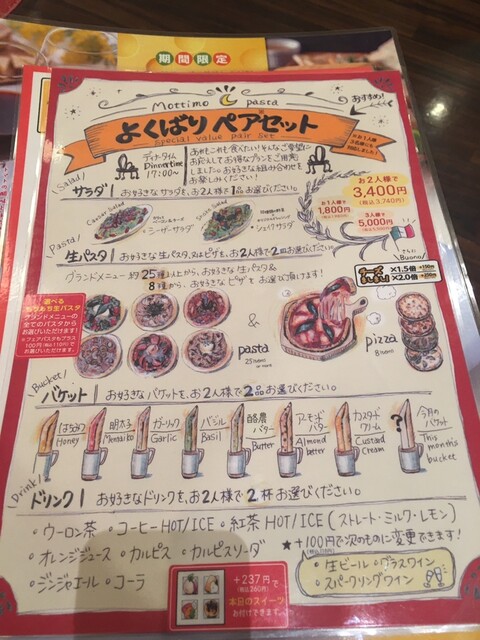 期間限定
Mottimo pasta
おすすめ!
よくばりペアセット
special value pair set
ディナータイム
Dinner time
17:00〜
あれもこれも食べたい!そんなご要望に
お応えしてお得なプランをご用意
しました。お好きな組み合わせを
お楽しみください!
お2人様で
3,400円
(税込3,740円)
1,800円
3人様で
5,000円
Salad
サラダ お好きなサラダを、お2人様で1品お選びください。
Caesar Salad
シーザーサラダ
シェフサラダ
Pasta
生パスタ お好きな生パスタ、又はピザを、お2人様で2皿お選びください。
Buono
グランドメニュー約25種以上から、お好きな生パスタ&
8種から、お好きなピザをお選び頂けます!
×1.5倍
×2.0倍
選べる
グランドメニューの
全てのパスタから
お選びいただけます!
※フェアパスタもプラス
100円(税込110円)にて
お選びいただけます。
&
pasta
pizza
8 item
Bucket
バケット お好きなバケットを、お2人様で2品お選びください。
はちみつ
Honey
明太子
Mentaiko
ガーリック
Garlic
バジル
Basil
酪農バター
Butter
アーモンドバター
Almond butter
カスタードクリーム
Custard Cream
?
今月のバケット
This month's bucket
Drink
ドリンク お好きなドリンクを、お2人様で2杯お選びください。
・ウーロン茶 ・コーヒーHOT/ICE ・紅茶HOT/ICE(ストレート・ミルク・レモン)
・オレンジジュース ・カルピス ・カルピスソーダ
・ジンジャエール ・コーラ
★+100円で次のものに変更できます!
・生ビール・グラスワイン
・スパークリングワイン
+237円で
(税込260円)
本日のスイーツ
お付けできます。